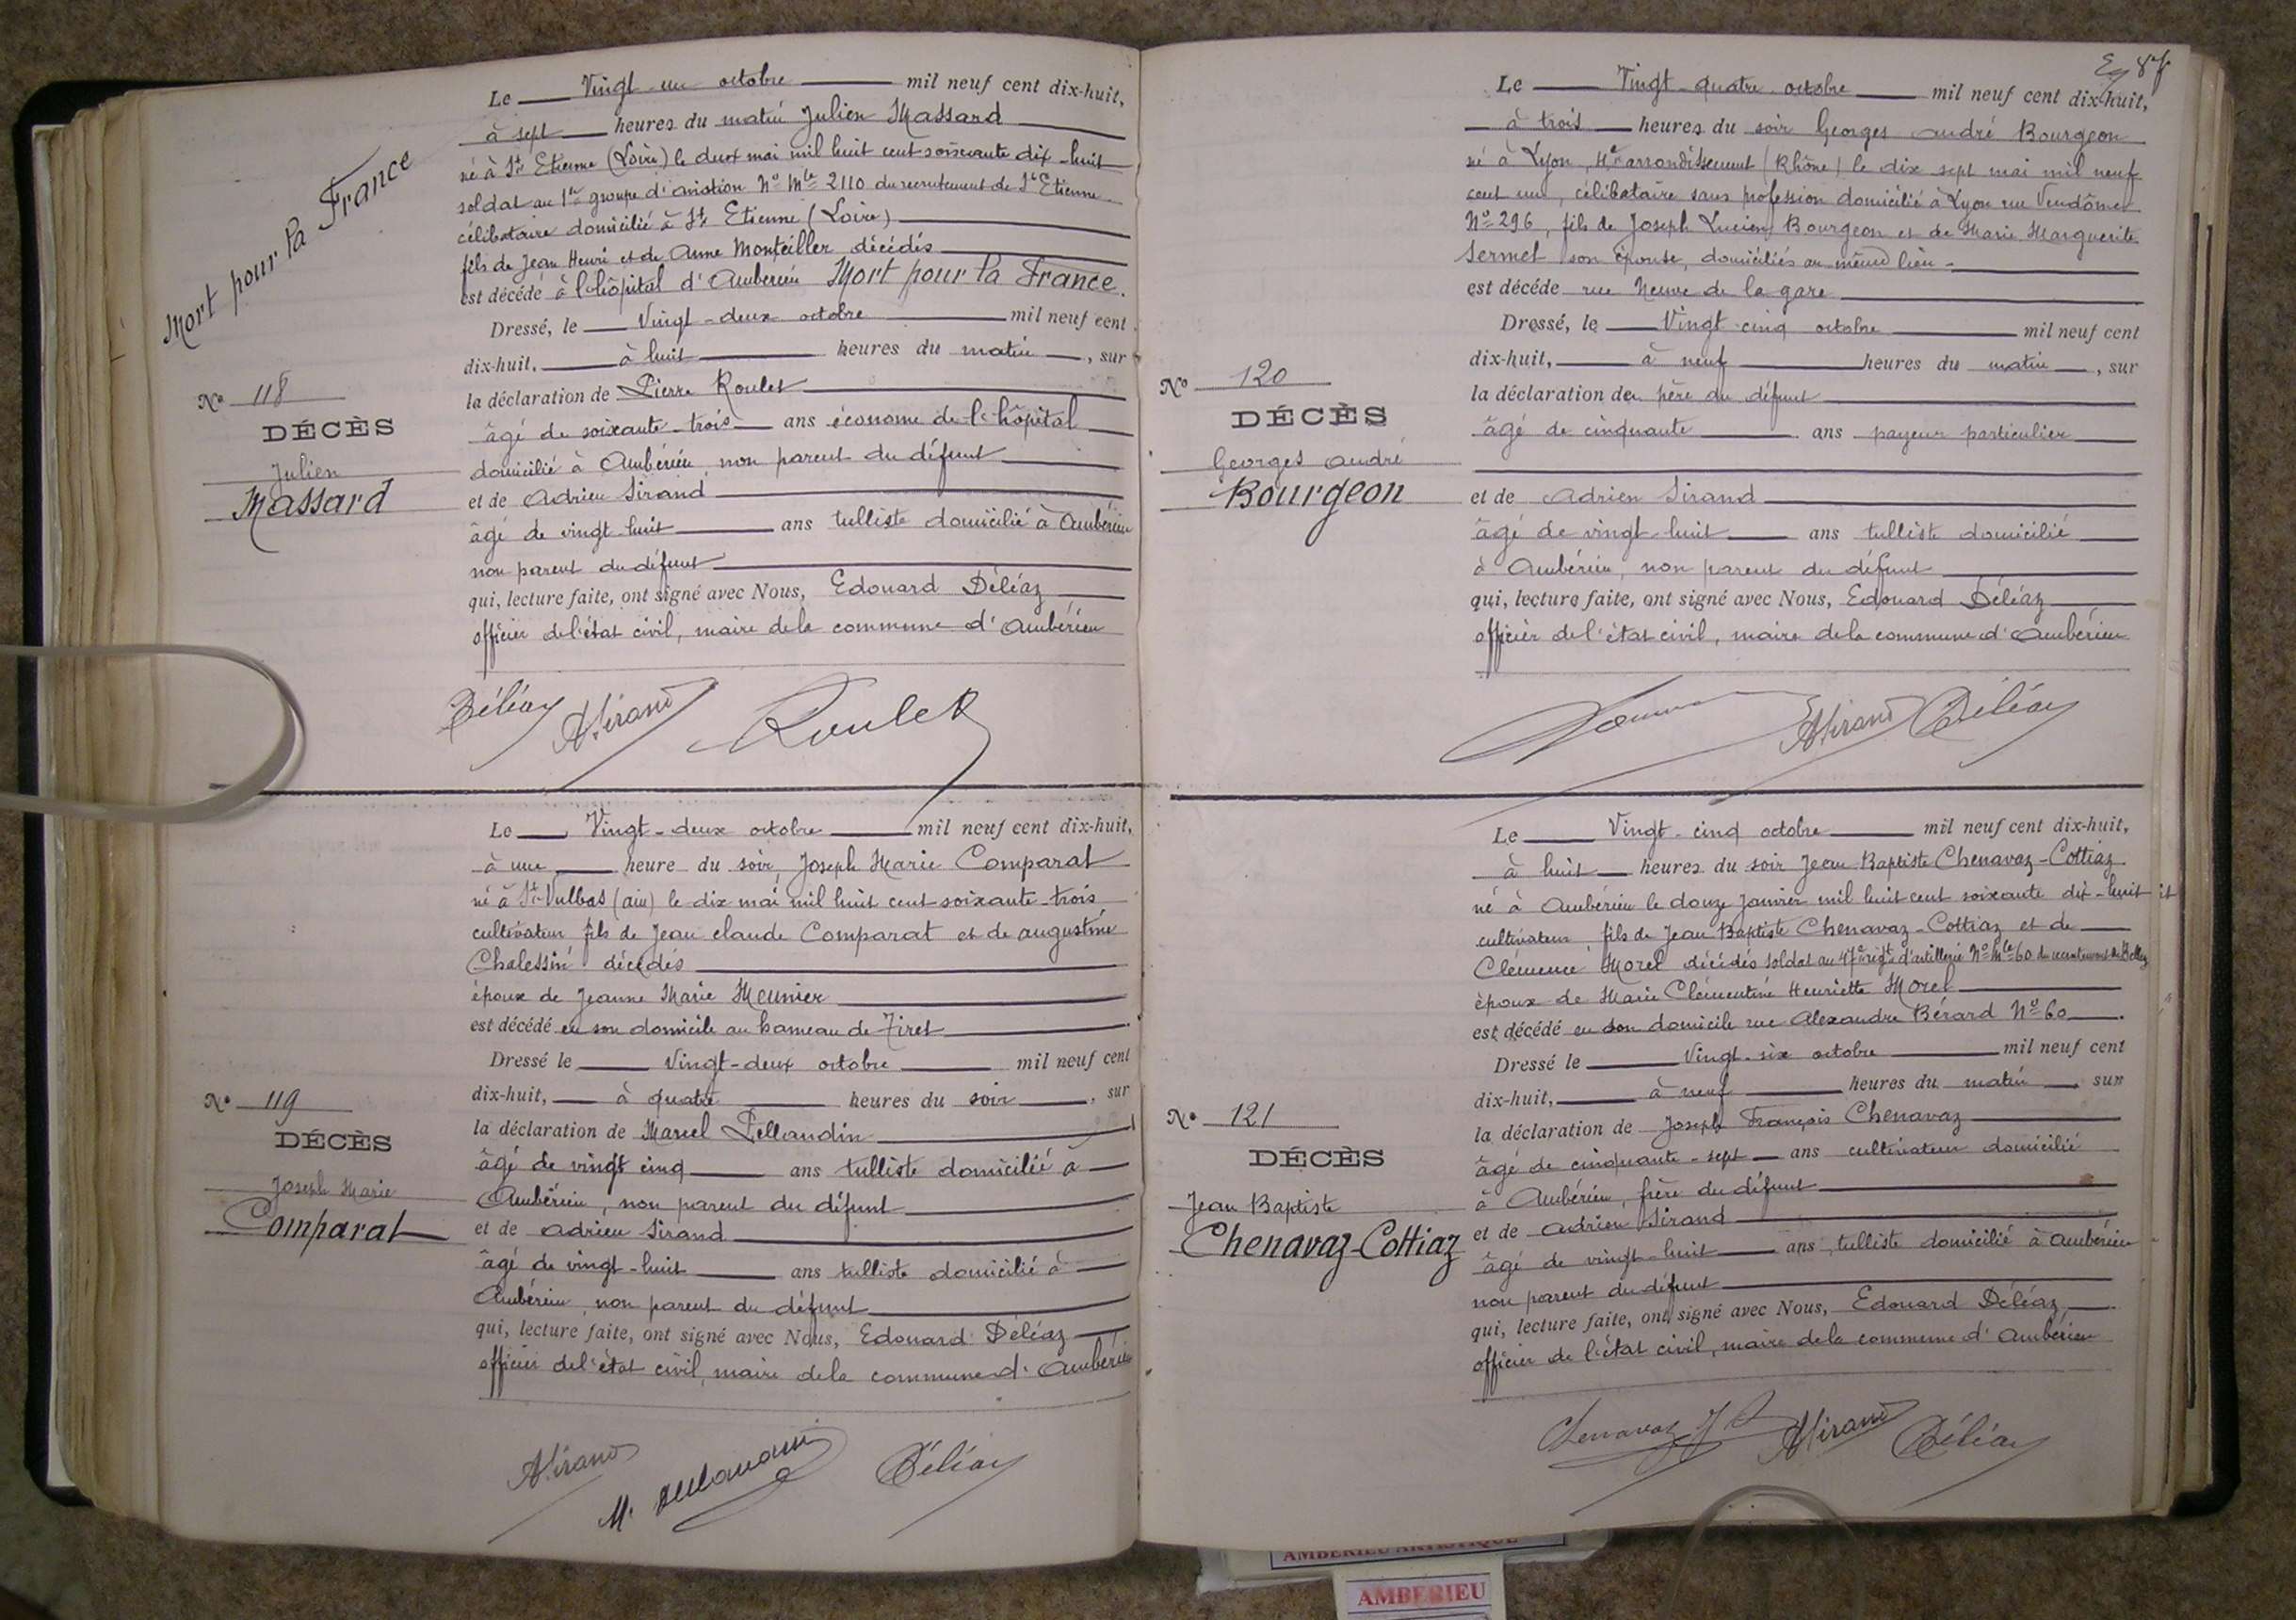 Mort pour la France
Le Vingt-un octobre mil neuf cent dix-huit,
à sept heures du matin Julien Massard
né à St Etienne (Loire) le deux mai mil huit cent soixante dix-huit
soldat au 1er groupe d'aviation No Mle 2110 du recrutement de St Etienne
célibataire domicilié à St Etienne (Loire)
fils de Jean Henri et de Anne Monteiller décédés
est décédé à l'hôpital d'Ambérieu Mort pour la France.
Dressé, le Vingt-deux octobre mil neuf cent
dix-huit, à huit heures du matin, sur
la déclaration de Pierre Roulet
âgé de soixante-trois ans économe de l'hôpital
domicilié à Ambérieu, non parent du défunt
et de Adrien Sirand
âgé de vingt-huit ans tulliste domicilié à Ambérieu
non parent du défunt
qui, lecture faite, ont signé avec Nous, Edouard Déléaz
officier de l'état civil, maire de la commune d'Ambérieu
No 118
DÉCÈS
Julien
Massard
Déléaz ASirand Roulet
Le Vingt-deux octobre mil neuf cent dix-huit,
à une heure du soir, Joseph Marie Comparat
né à St Vulbas (ain) le dix mai mil huit cent soixante-trois
cultivateur fils de Jean claude Comparat et de augustine
Chalessin décédés
époux de Jeanne Marie Meunier
est décédé en son domicile au hameau de Tiret
Dressé le Vingt-deux octobre mil neuf cent
dix-huit, à quatre heures du soir, sur
la déclaration de Marcel Pellaudin
âgé de vingt cinq ans tulliste domicilié à
Ambérieu, non parent du défunt
et de Adrien Sirand
âgé de vingt-huit ans tulliste domicilié à
Ambérieu, non parent du défunt
qui, lecture faite, ont signé avec Nous, Edouard Déléaz
officier de l'état civil, maire de la commune d'Ambérieu
No 119
DÉCÈS
Joseph Marie
Comparat
ASirand Déléaz
87
Le Vingt-quatre octobre mil neuf cent dix-huit,
à trois heures du soir Georges andré Bourgeon
né à Lyon, 4e arrondissement (Rhône) le dix sept mai mil neuf
cent un, célibataire sans profession domicilié à Lyon rue Vendôme
No 296, fils de Joseph Lucien Bourgeon et de Marie Marguerite
Sermet son épouse, domiciliés au même lieu
est décédé rue Neuve de la gare
Dressé, le Vingt-cinq octobre mil neuf cent
dix-huit, à neuf heures du matin, sur
la déclaration du père du défunt
âgé de cinquante ans payeur particulier
et de Adrien Sirand
âgé de vingt-huit ans tulliste domicilié
à Ambérieu, non parent du défunt
qui, lecture faite, ont signé avec Nous, Edouard Déléaz
officier de l'état civil, maire de la commune d'Ambérieu
No 120
DÉCÈS
Georges andré
Bourgeon
ASirand Déléaz
Le Vingt-cinq octobre mil neuf cent dix-huit,
à huit heures du soir Jean Baptiste Chenavaz-Cottiaz
né à Ambérieu le douze janvier mil huit cent soixante dix-huit
cultivateur, fils de Jean Baptiste Chenavaz-Cottiaz et de
Clémence Morel décédés soldat au 47e régt d'artillerie No Mle 60 du recrutement de Belley
époux de Marie Clémentine Henriette Morel
est décédé en son domicile rue Alexandre Bérard No 60
Dressé le Vingt-six octobre mil neuf cent
dix-huit, à neuf heures du matin, sur
la déclaration de Joseph François Chenavaz
âgé de cinquante-sept ans cultivateur domicilié
à Ambérieu, frère du défunt
et de Adrien Sirand
âgé de vingt-huit ans, tulliste domicilié à Ambérieu
non parent du défunt
qui, lecture faite, ont signé avec Nous, Edouard Déléaz
officier de l'état civil, maire de la commune d'Ambérieu
No 121
DÉCÈS
Jean Baptiste
Chenavaz-Cottiaz
Chenavaz ASirand Déléaz
AMBERIEU ARTISTIQUE
AMBERIEU